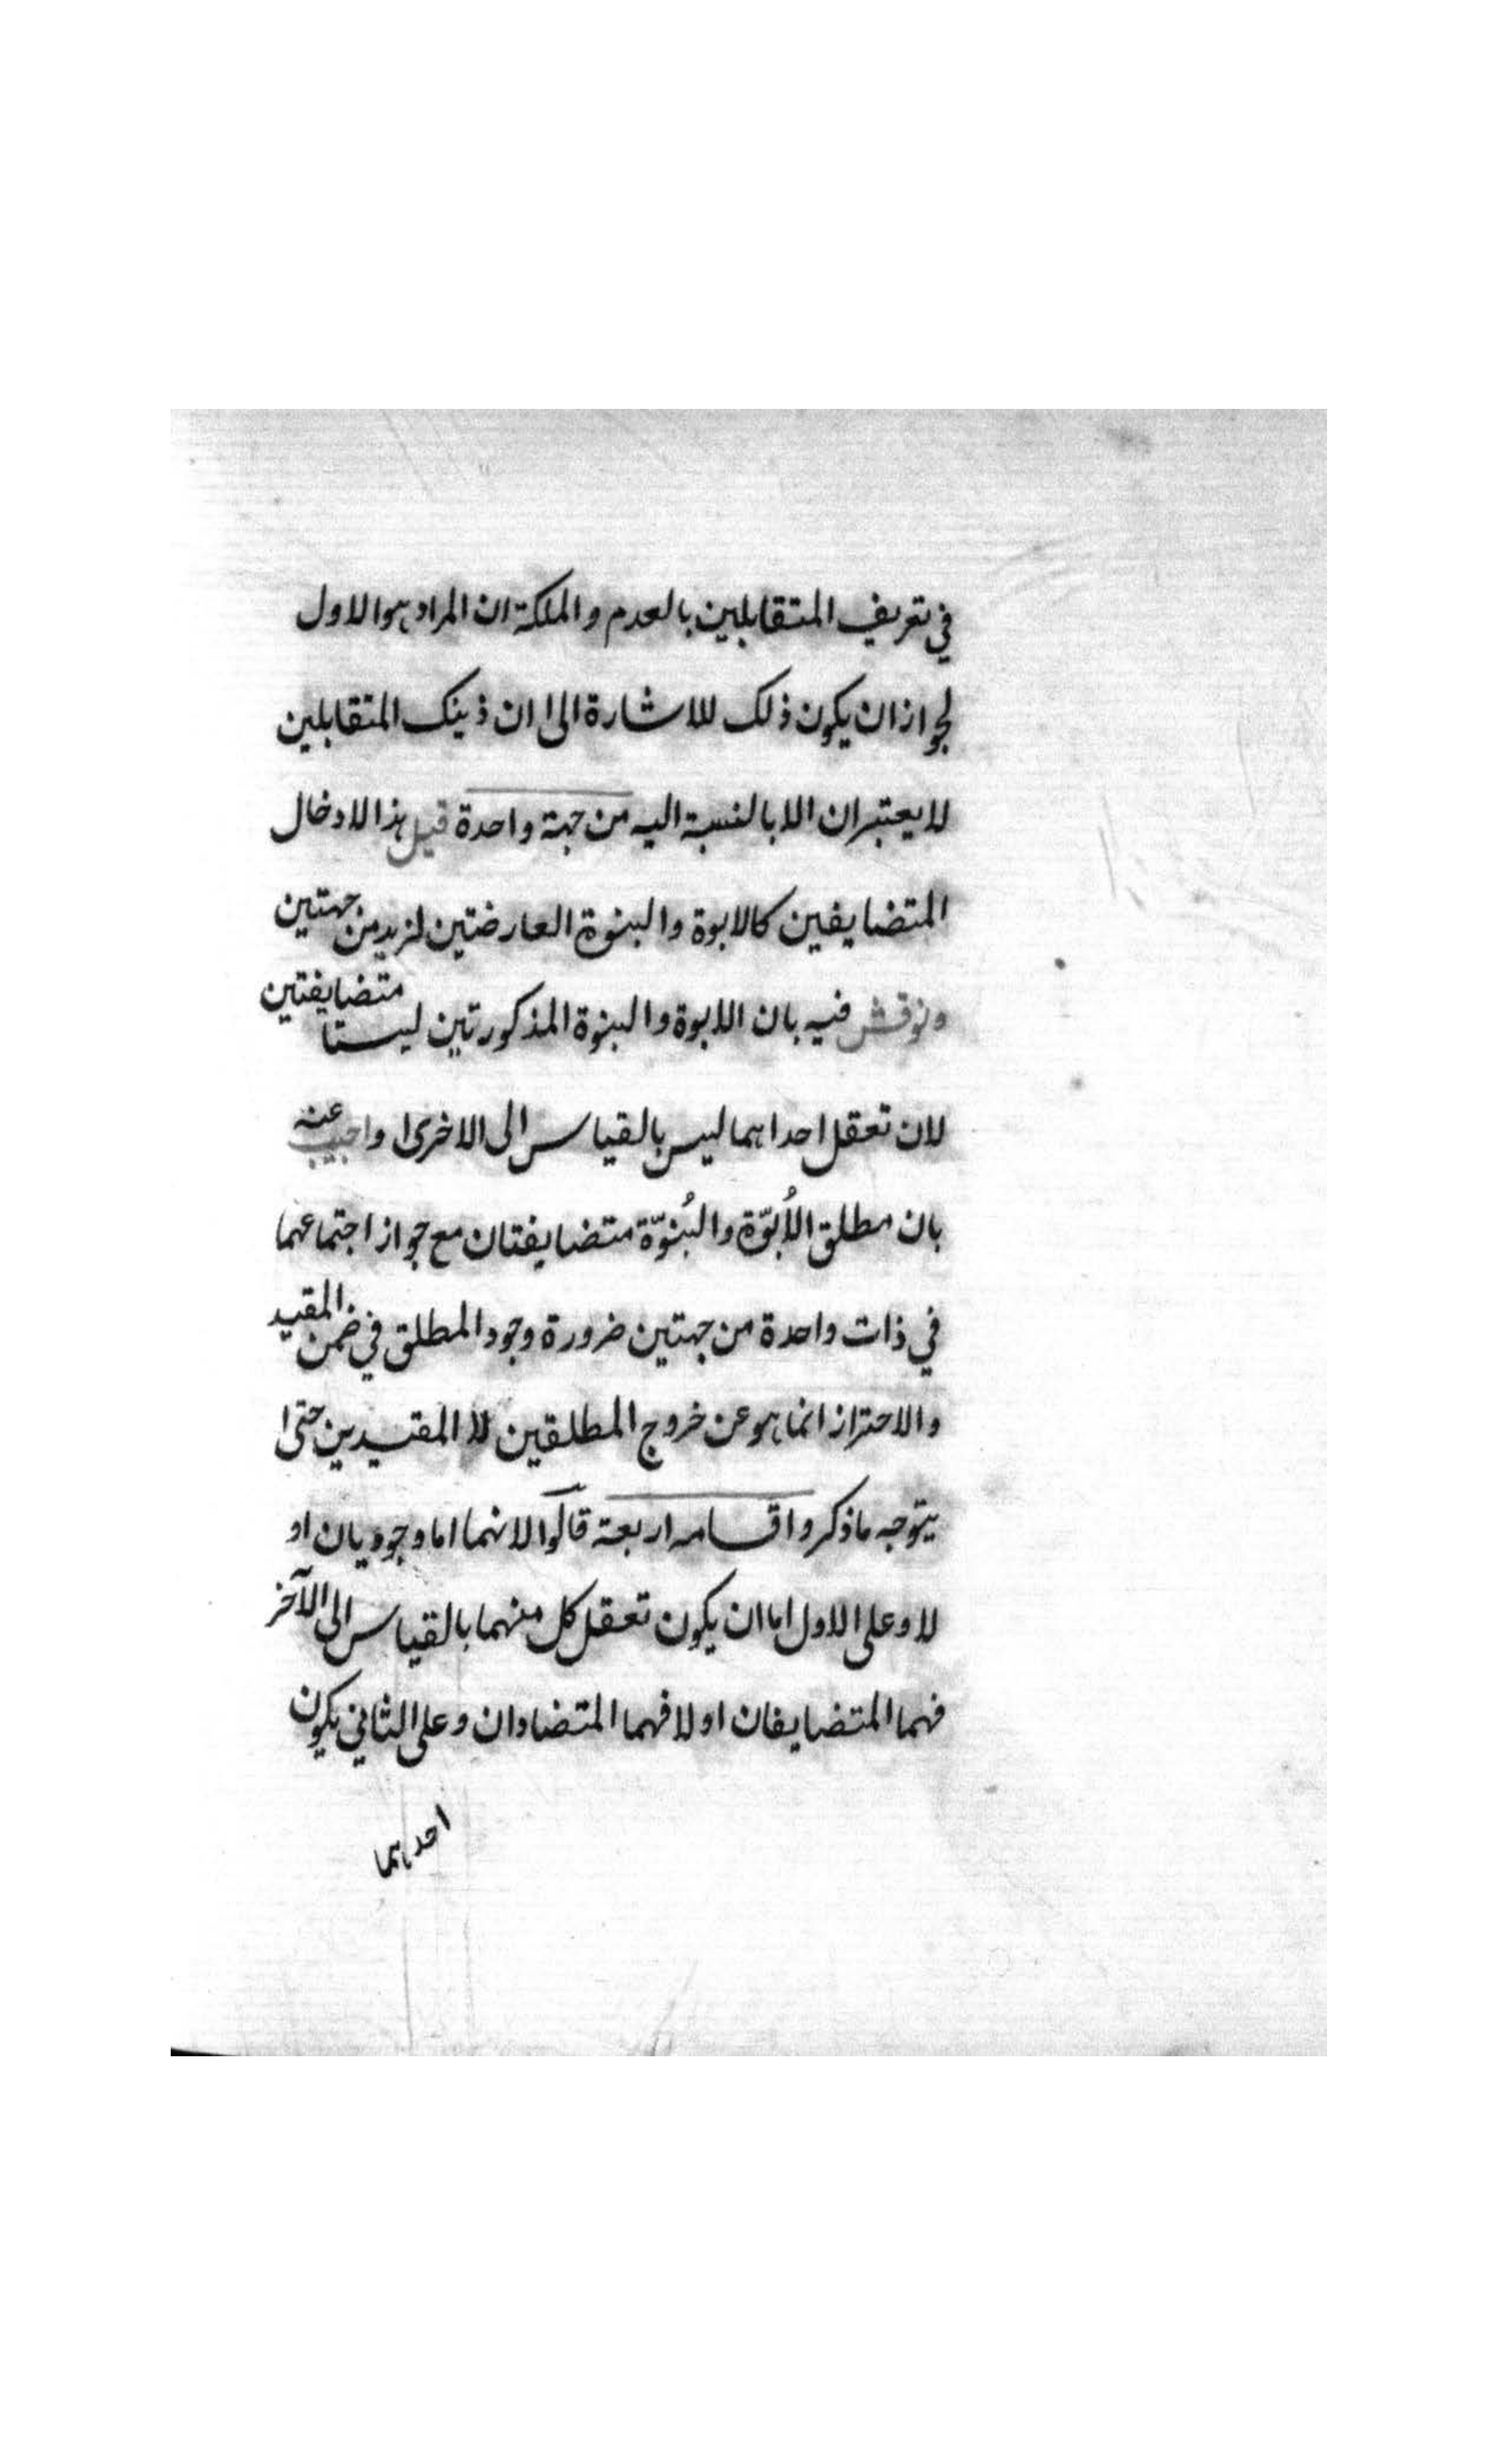 في تعريف المتقابلين بالعدم والملكة ان المراد هو الاول
لجواز ان يكون ذلك للاشارة الى ان ذينك المتقابلين
لا يعتبران الا بالنسبة اليه من جهة واحدة قيل هذا لادخال
المتضايفين كالابوة والبنوة العارضتين لزيد من جهتين
ونوقش فيه بان الابوة والبنوة المذكورتين ليستا متضايفتين
لان تعقل احداهما ليس بالقياس الى الاخرى واجيب عنه
بان مطلق الأُبوّة والبُنوّة متضايفتان مع جواز اجتماعهما
في ذات واحدة من جهتين ضرورة وجود المطلق في ضمن المقيد
والاحتراز انما هو عن خروج المطلقين لا المقيدين حتى
يتوجه ما ذكر واقسامه اربعة قالوا لانهما اما وجوديان او
لا وعلى الاول اما ان يكون تعقل كل منهما بالقياس الى الآخر
فهما المتضايفان او لا فهما المتضادان وعلى الثاني يكون
احدهما